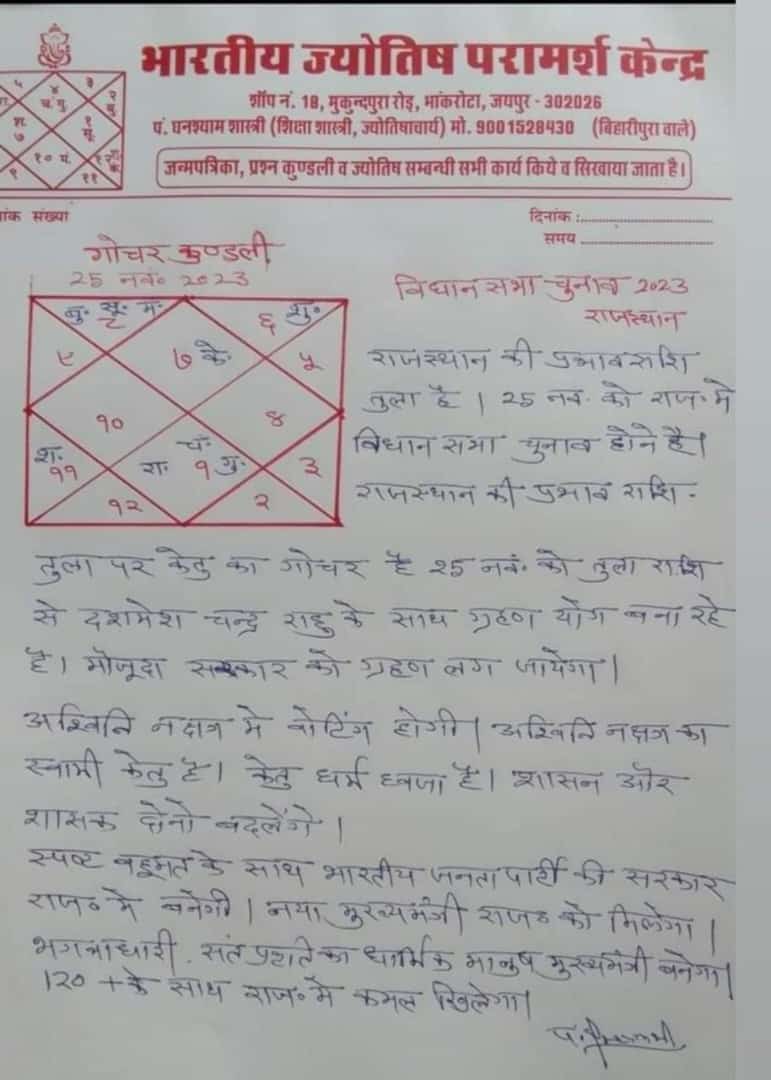 भारतीय ज्योतिष परामर्श केन्द्र
शॉप नं. 18, मुकुन्दपुरा रोड़, भांकरोटा, जयपुर - 302026
पं. घनश्याम शास्त्री (शिक्षा शास्त्री, ज्योतिषाचार्य) मो. 9001528430 (बिहारीपुरा वाले)
जन्मपत्रिका, प्रश्न कुण्डली व ज्योतिष सम्बन्धी सभी कार्य किये व सिखाया जाता है।
५ ४ ३
चं. गु. २
श. ७ १ सू.
१० मं. १२
९ ११
ांक संख्या
दिनांक :
समय
गोचर कुण्डली
25 नवं० 2023
विधान सभा चुनाव 2023
राजस्थान
बु. सू. मं. ८
६ शु.
९ ७ के. ५
१० ४
श. ११ रा. चं. १ गु. ३
१२ २
राजस्थान की प्रभाव राशि
तुला है । 25 नवं. को राज० मे
विधान सभा चुनाव होने है।
राजस्थान की प्रभाव राशि -
तुला पर केतु का गोचर है 25 नवं. को तुला राशि
से दशमेश चन्द्र राहु के साथ ग्रहण योग बना रहे
है। मौजूदा सरकार को ग्रहण लग जायेगा।
अश्विनि नक्षत्र मे वोटिंग होगी। अश्विनि नक्षत्र का
स्वामी केतु है। केतु धर्म ध्वजा है। शासन और
शासक दोनो बदलेंगे ।
स्पष्ट बहूमत के साथ भारतीय जनता पार्टी की सरकार
राज० मे बनेगी । नया मुख्यमंत्री राज० को मिलेगा ।
भगवाधारी. संत प्रवृति का धार्मिक मानुष मुख्यमंत्री बनेगा।
120 + के साथ राज० मे कमल खिलेगा।